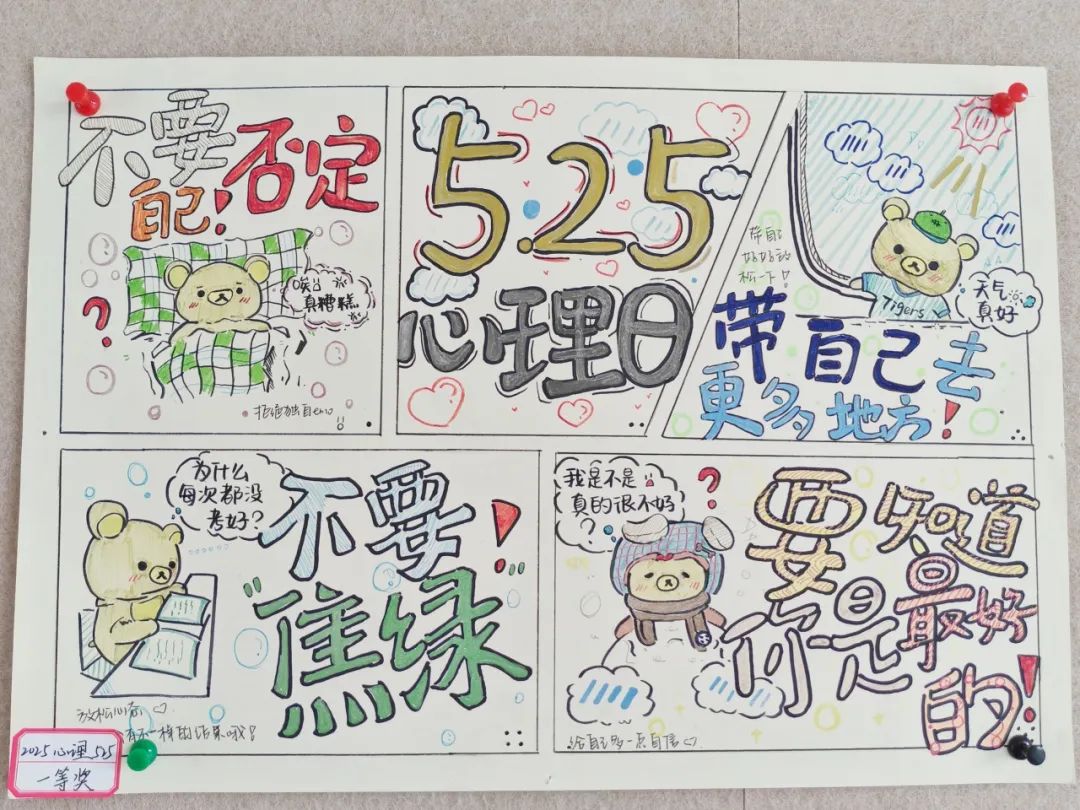 不要
否定
自己!
?
唉
真糟糕
拒绝独自emo
5.25
心理日
带自己
好好放
松一下!
Tigers
天气
真好
带自己去
更多地方!
为什么
每次都没
考好?
不要!
"焦绿"
放松心态
有不一样的结果哦!
我是不是
真的很不好
?
?
要知道
你是最好
的!
给自己多一点自信
2025心理525
一等奖